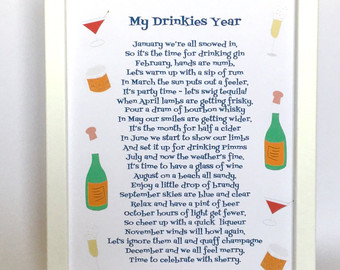 My Drinkies Year
January we're all snowed in,
So it's the time for drinking gin
February, hands are numb,
Let's warm up with a sip of rum
In March the sun puts out a feeler,
It's party time - let's swig tequila!
When April lambs are getting frisky,
Pour a dram of bourbon whisky
In May our smiles are getting wider,
It's the month for half a cider
In June we start to show our limbs
And set it up for drinking Pimms
July and now the weather's fine,
It's time to have a glass of wine
August on a beach all sandy,
Enjoy a little drop of brandy
September skies are blue and clear
Relax and have a pint of beer
October hours of light get fewer,
So cheer up with a quick liqueur
November winds howl again,
Let's ignore them all and quaff champagne
December and we all feel merry,
Time to celebrate with sherry.